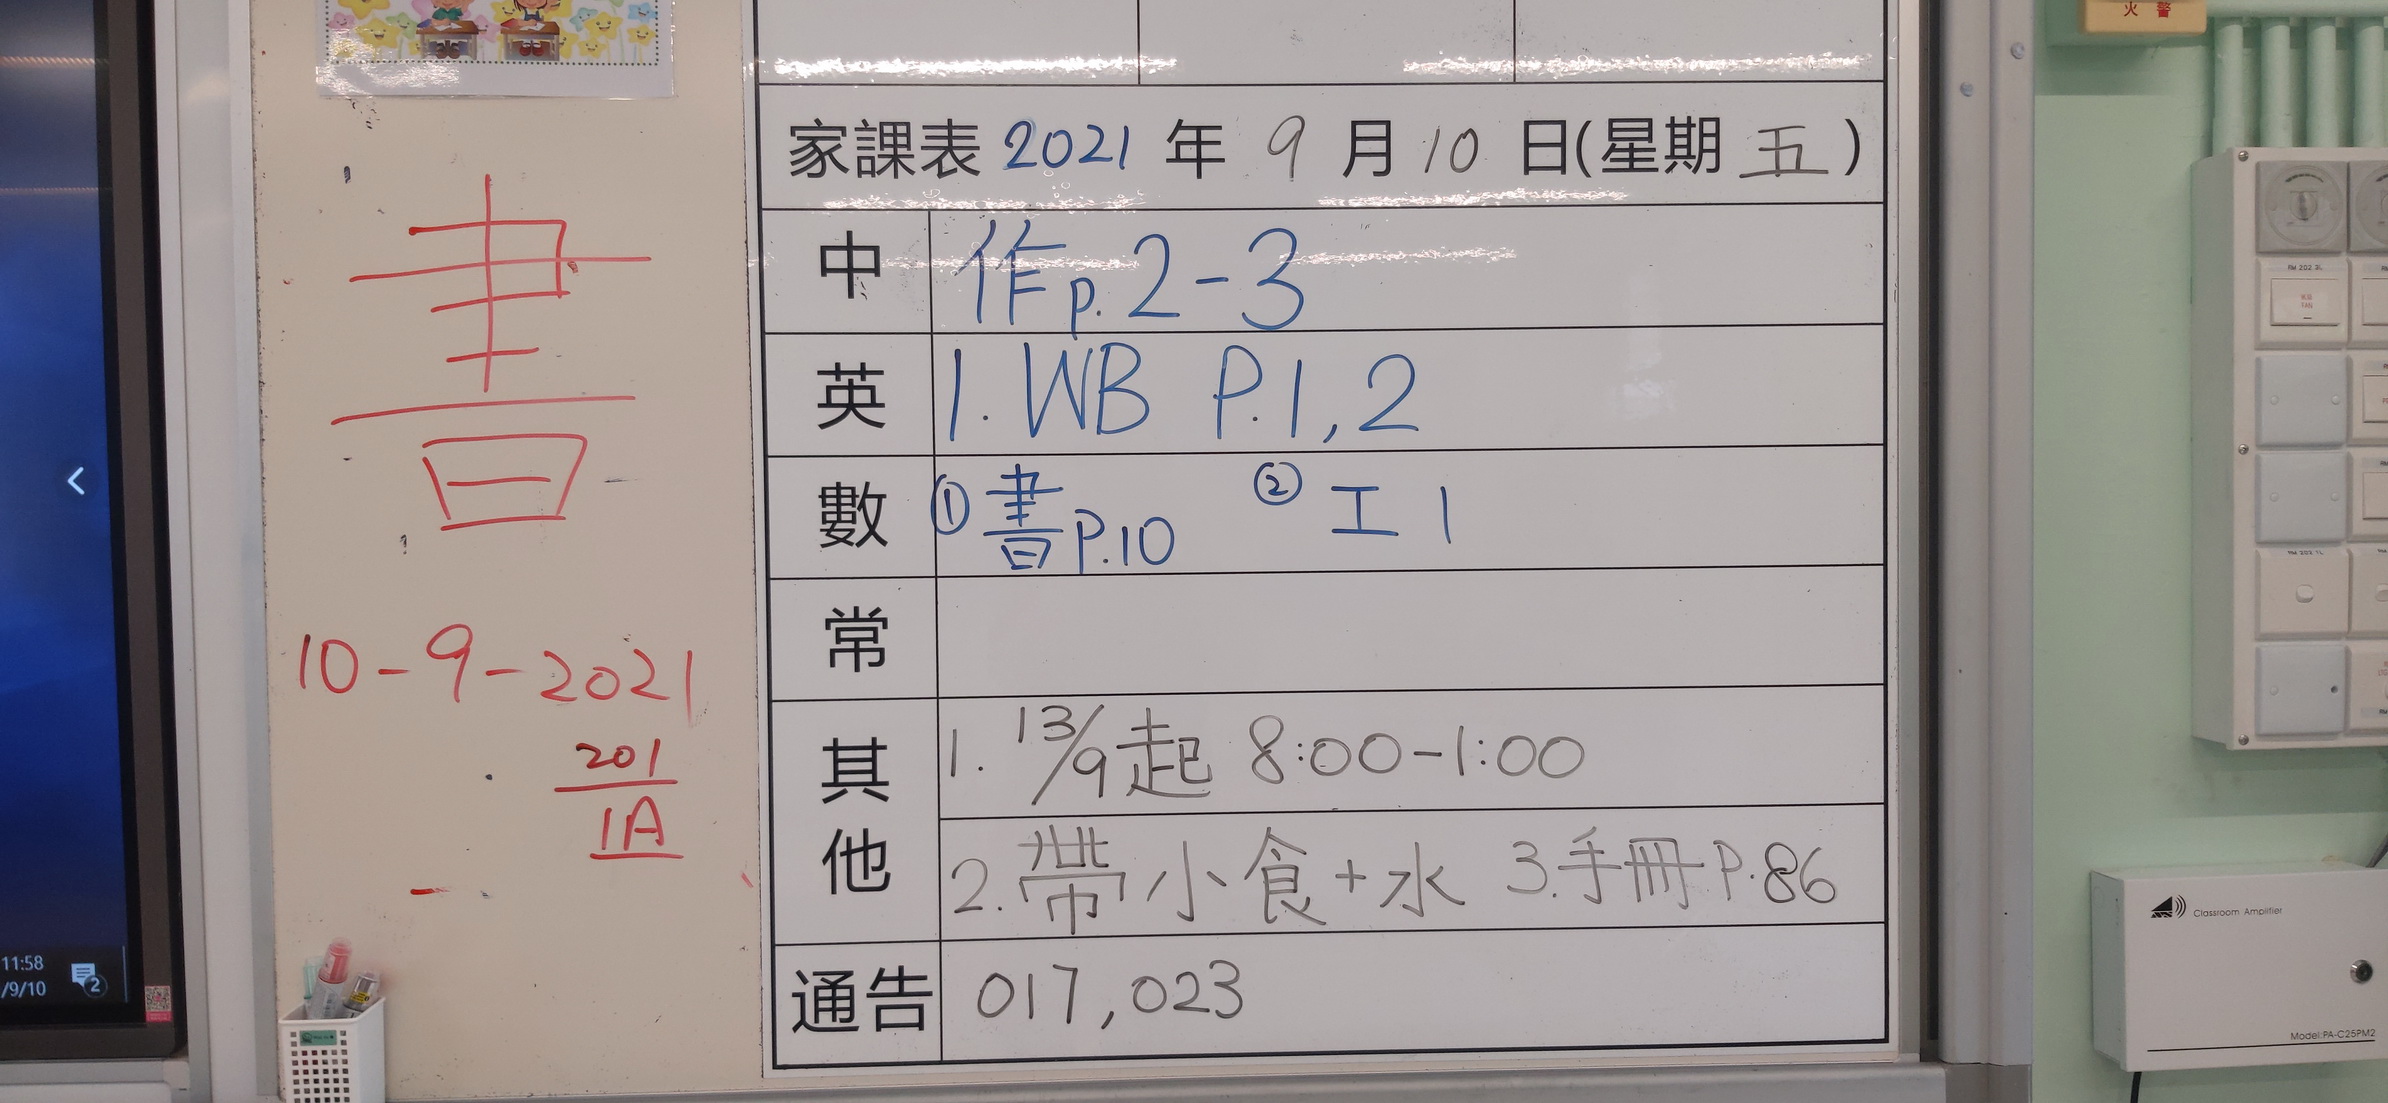 火 警
書
10-9-2021
201
1A
家課表 2021 年 9 月 10 日(星期 五)
中 作p.2-3
英 1. WB P.1,2
數 ①書P.10 ②工1
常
其他 1. 13/9起 8:00-1:00
2.帶小食+水 3.手冊P.86
通告 017,023
11:58
/9/10
2
RM 202 3L
FAN
RM 202 1L
Classroom Amplifier
Model:PA-C25PM2